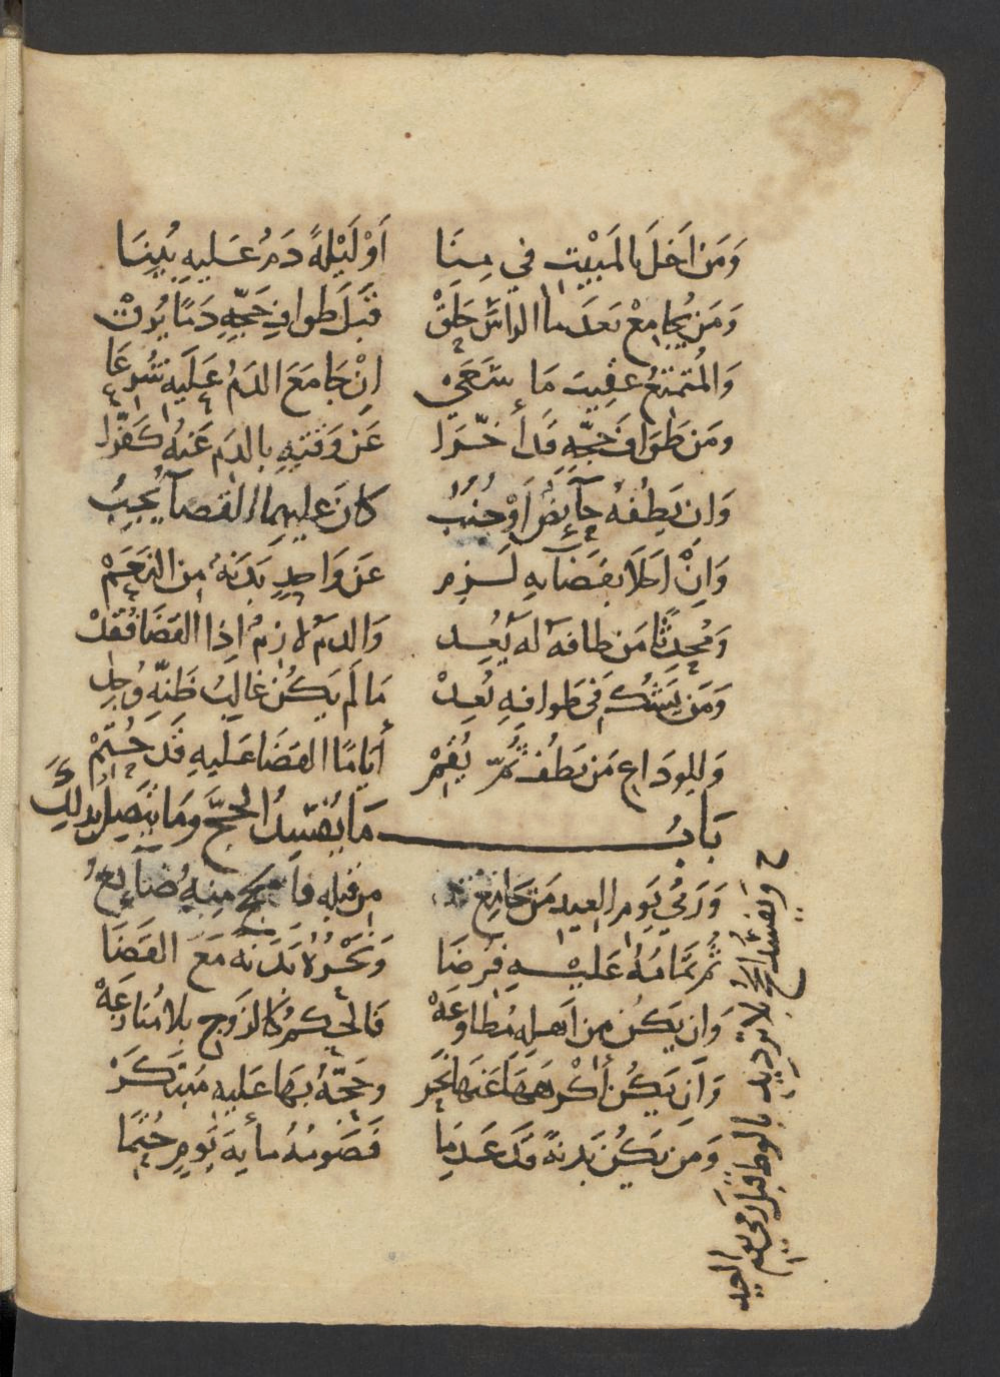 وَمَن اَخَلَ بالمَبيْتِ في مِنَا اَوْ لَيْلةً دَمٌ عَليهِ بُيِنَا
وَمَن يُجامِعْ بَعدَما الراسَ حَلَقْ قَبلَ طوافِ حَجِّهِ دَمًا يُرِقْ
وَالمُتمتعُ عقيبَ مَا سَعَى اِنْ جَامَعَ الدَمُ عَلَيهِ شُرِعَا
ومَن طَوافَ حَجِّهِ قَد أخّرَا عَن وَقتِهِ بالدَمِ عَنهُ كَفّرا
وَان يَطفهُ حآيضٌ اَوْ جُنُبُ كانَ عليهِما القَضآ يُجِبُ
وَاِنْ اَخَلَا بقَضَايهِ لَزِم عَن وَاحدٍ بَدَنَةٌ مِن النَعَمْ
وَمُحدِثًا مَن طافهُ لهُ يُعِد وَالدمُ لازِمٌ اِذا القضَا فُقِدْ
وَمَن يَشك في طَوافِهِ يُعِدْ مَا لم يَكُن غالِبُ ظَنِّهِ وُجِد
وَللوِدَاعِ مَن يَطُف ثُمّ يُقِمْ أيَامًا القضَا عَليهِ قَد حُتِمْ
بَابُ مَا يُفسِدُ الحجَّ وَمَا يتَصِلُ بِذلِكَ
وَرَمْي يَومِ العيدِ مَن جَامَعَ مِن قبلِهِ فا منهُ ضآيعُ
ثُم تَمَامُهُ عَليْهِ فُرِضَا وَنَحْرُهُ بَدَنةً مَعَ القَضَا
وَان يَكُن مِن اَهلِهِ مُطاوَعَهْ فَالحكمُ كَالزَوجِ بلا مُنازَعَهْ
وَان يَكُن أكْرَهَهَا عَنهَا نَحَر وحَجّهُ بهَا عَليهِ مُبتكَرْ
وَمَن يَكُن بَدنةً قَد عَدِمَا فَصَومُهُ مأيةَ يَومٍ حُتِمَا
ح وَيَفسُد الحج بلا ترديد بالوطء قبل رمى يوم العيد